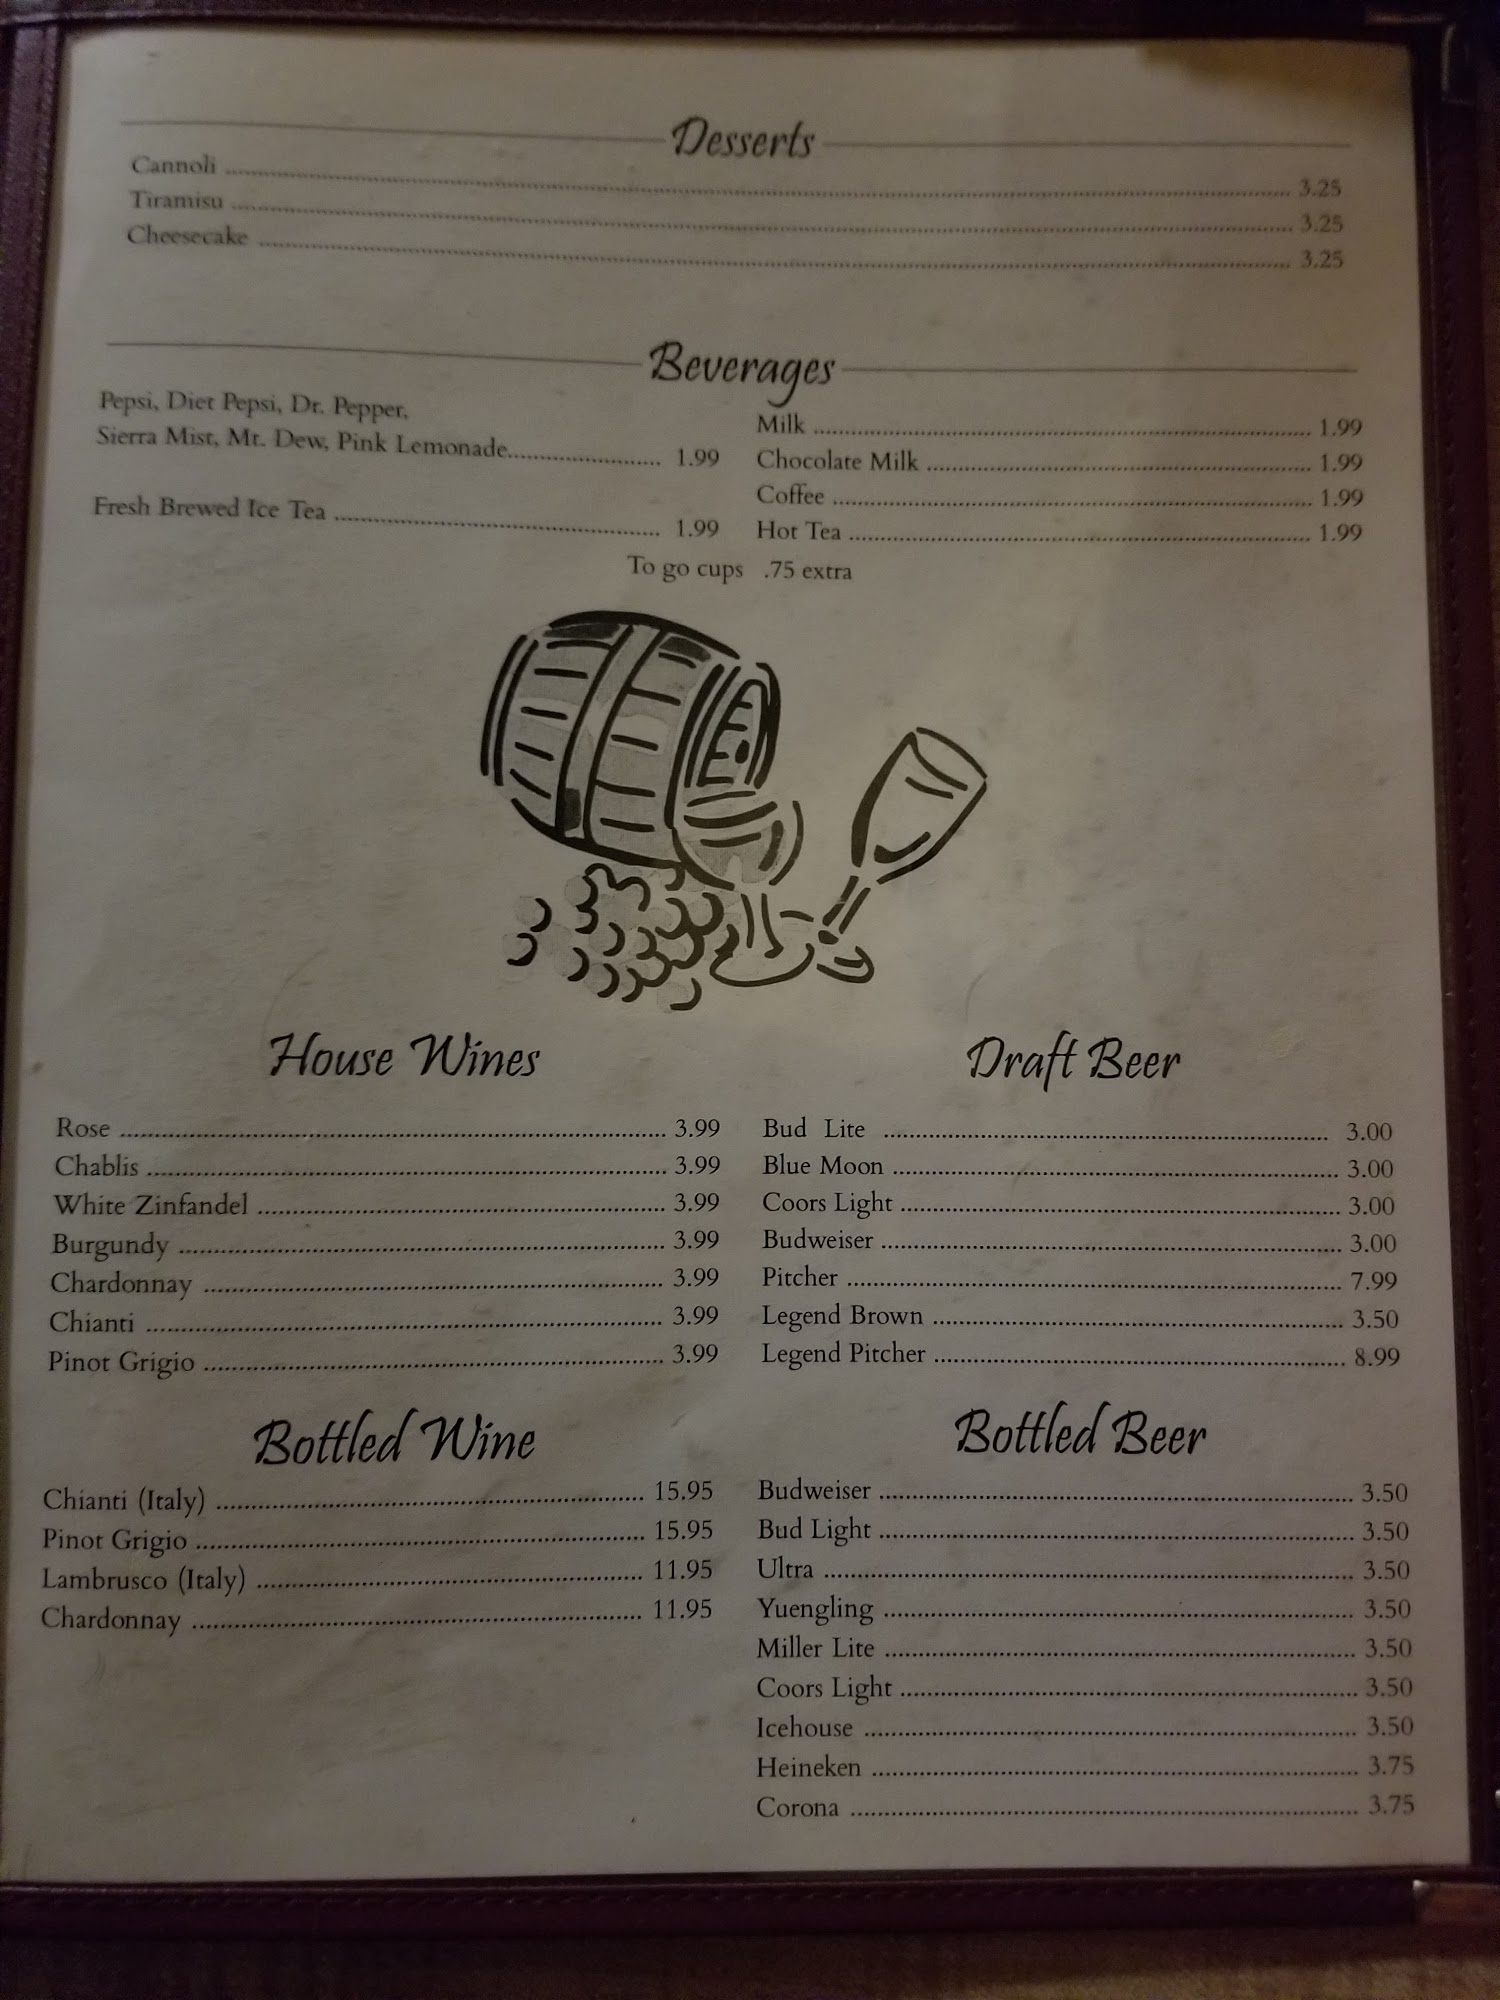 Desserts
Cannoli 3.25
Tiramisu 3.25
Cheesecake 3.25
Beverages
Pepsi, Diet Pepsi, Dr. Pepper,
Sierra Mist, Mt. Dew, Pink Lemonade 1.99
Fresh Brewed Ice Tea 1.99
Milk 1.99
Chocolate Milk 1.99
Coffee 1.99
Hot Tea 1.99
To go cups .75 extra
House Wines
Rose 3.99
Chablis 3.99
White Zinfandel 3.99
Burgundy 3.99
Chardonnay 3.99
Chianti 3.99
Pinot Grigio 3.99
Draft Beer
Bud Lite 3.00
Blue Moon 3.00
Coors Light 3.00
Budweiser 3.00
Pitcher 7.99
Legend Brown 3.50
Legend Pitcher 8.99
Bottled Wine
Chianti (Italy) 15.95
Pinot Grigio 15.95
Lambrusco (Italy) 11.95
Chardonnay 11.95
Bottled Beer
Budweiser 3.50
Bud Light 3.50
Ultra 3.50
Yuengling 3.50
Miller Lite 3.50
Coors Light 3.50
Icehouse 3.50
Heineken 3.75
Corona 3.75